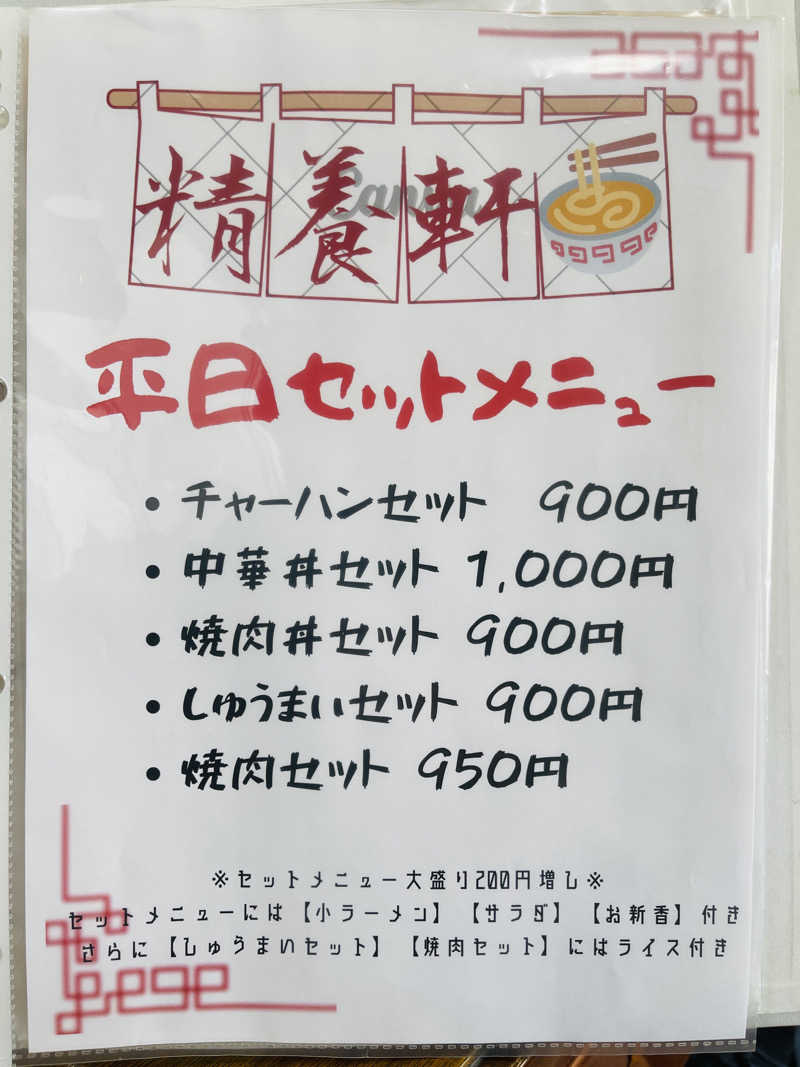 精養軒
Canva
平日セットメニュー
• チャーハンセット 900円
• 中華丼セット 1,000円
• 焼肉丼セット 900円
• しゅうまいセット 900円
• 焼肉セット 950円
※セットメニュー大盛り200円増し※
セットメニューには【小ラーメン】【サラダ】【お新香】付き
さらに【しゅうまいセット】【焼肉セット】にはライス付き